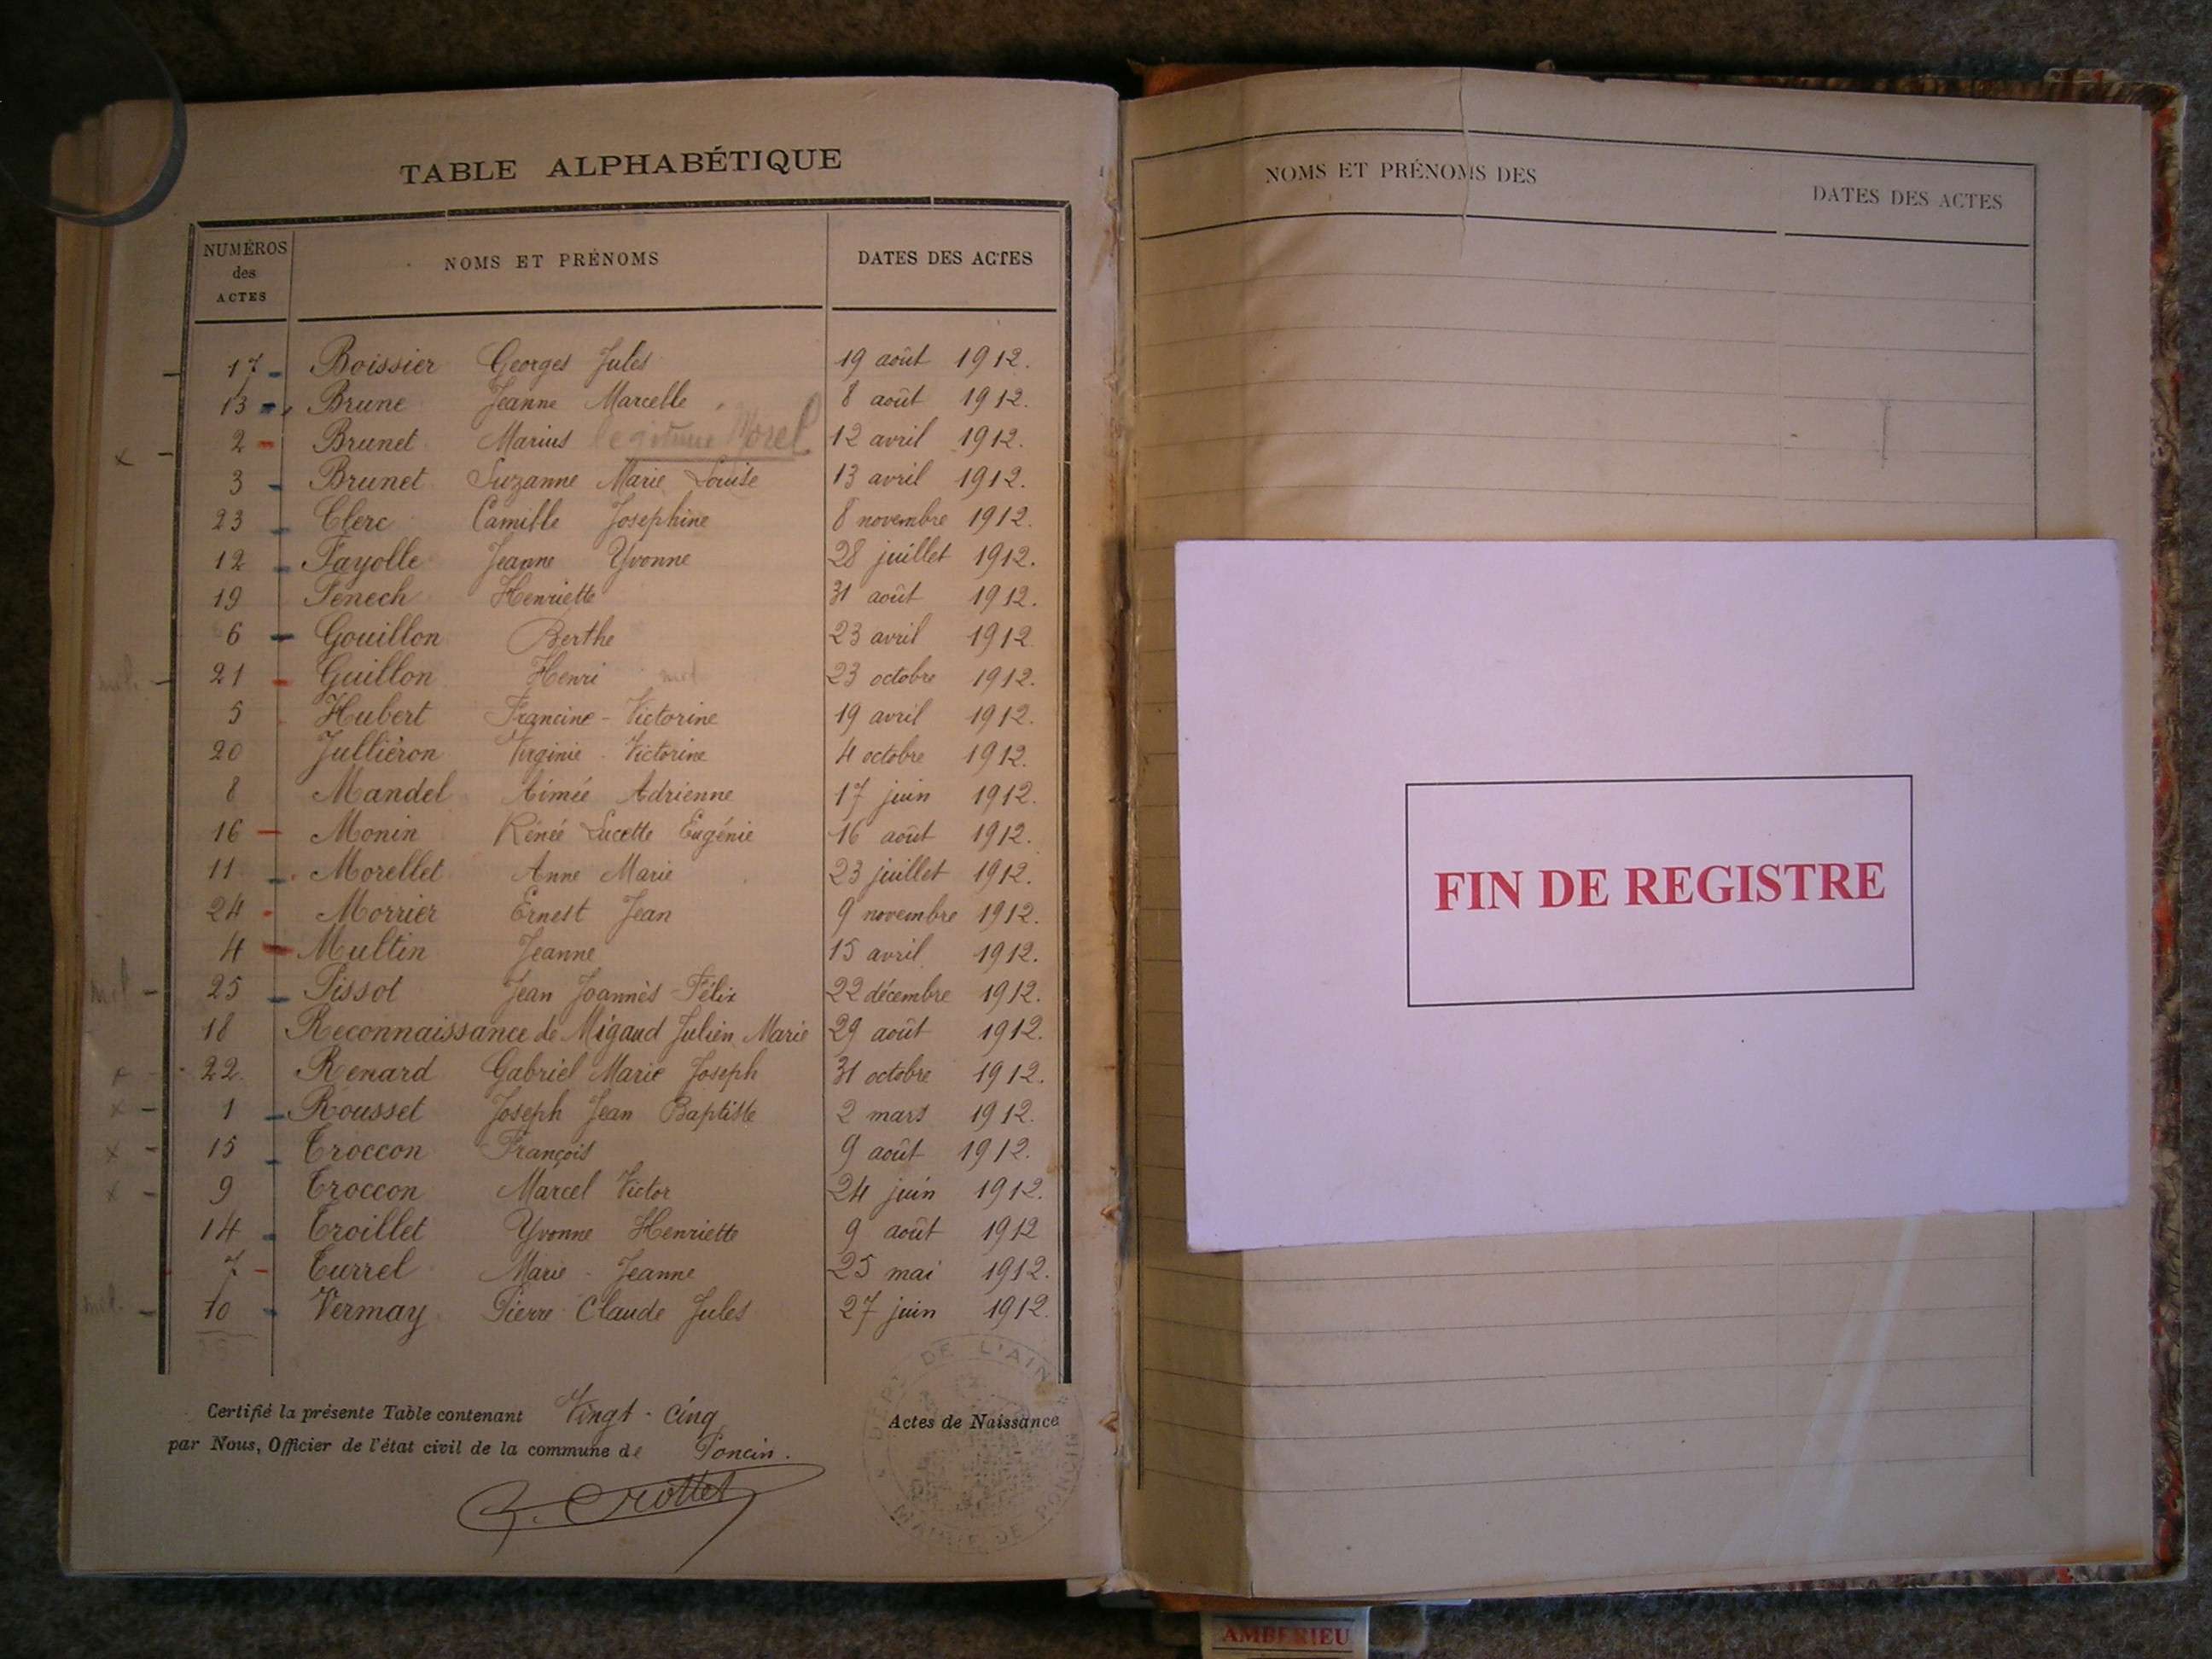 TABLE ALPHABÉTIQUE
NUMÉROS des ACTES NOMS ET PRÉNOMS DATES DES ACTES
17 Boissier Georges Jules 19 août 1912.
13 Brune Jeanne Marcelle 8 août 1912.
2 Brunet Marius legitimé Morel 12 avril 1912.
3 Brunet Suzanne Marie Louise 13 avril 1912.
23 Clerc Camille Josephine 8 novembre 1912.
12 Fayolle Jeanne Yvonne 28 juillet 1912.
19 Fenech Henriette 31 août 1912.
6 Gouillon Berthe 23 avril 1912
21 Guillon Henri 23 octobre 1912.
5 Hubert Francine - Victorine 19 avril 1912.
20 Julliéron Virginie - Victorine 4 octobre 1912.
8 Mandel Aimée Adrienne 17 juin 1912.
16 Monin Rénée Lucette Eugénie 16 août 1912.
11 Morellet Anne Marie 23 juillet 1912.
24 Morrier Ernest Jean 9 novembre 1912.
4 Multin Jeanne 15 avril 1912.
25 Pissot Jean Joannès - Félix 22 décembre 1912.
18 Reconnaissance de Migaud Julien Marie 29 août 1912.
22. Renard Gabriel Marie Joseph 31 octobre 1912.
1 Rousset Joseph Jean Baptiste 2 mars 1912.
15 Troccon François 9 août 1912.
9 Troccon Marcel Victor 24 juin 1912.
14 Troillet Yvonne Henriette 9 août 1912
7 Turrel Marie - Jeanne 25 mai 1912.
10 Vermay Pierre Claude Jules 27 juin 1912.
Certifié la présente Table contenant Vingt-cinq Actes de Naissance
par Nous, Officier de l'état civil de la commune de Poncin.
Crottet
DÉPT DE L'AIN
MAIRIE DE PONCIN
NOMS ET PRÉNOMS DES DATES DES ACTES
FIN DE REGISTRE
AMBERIEU